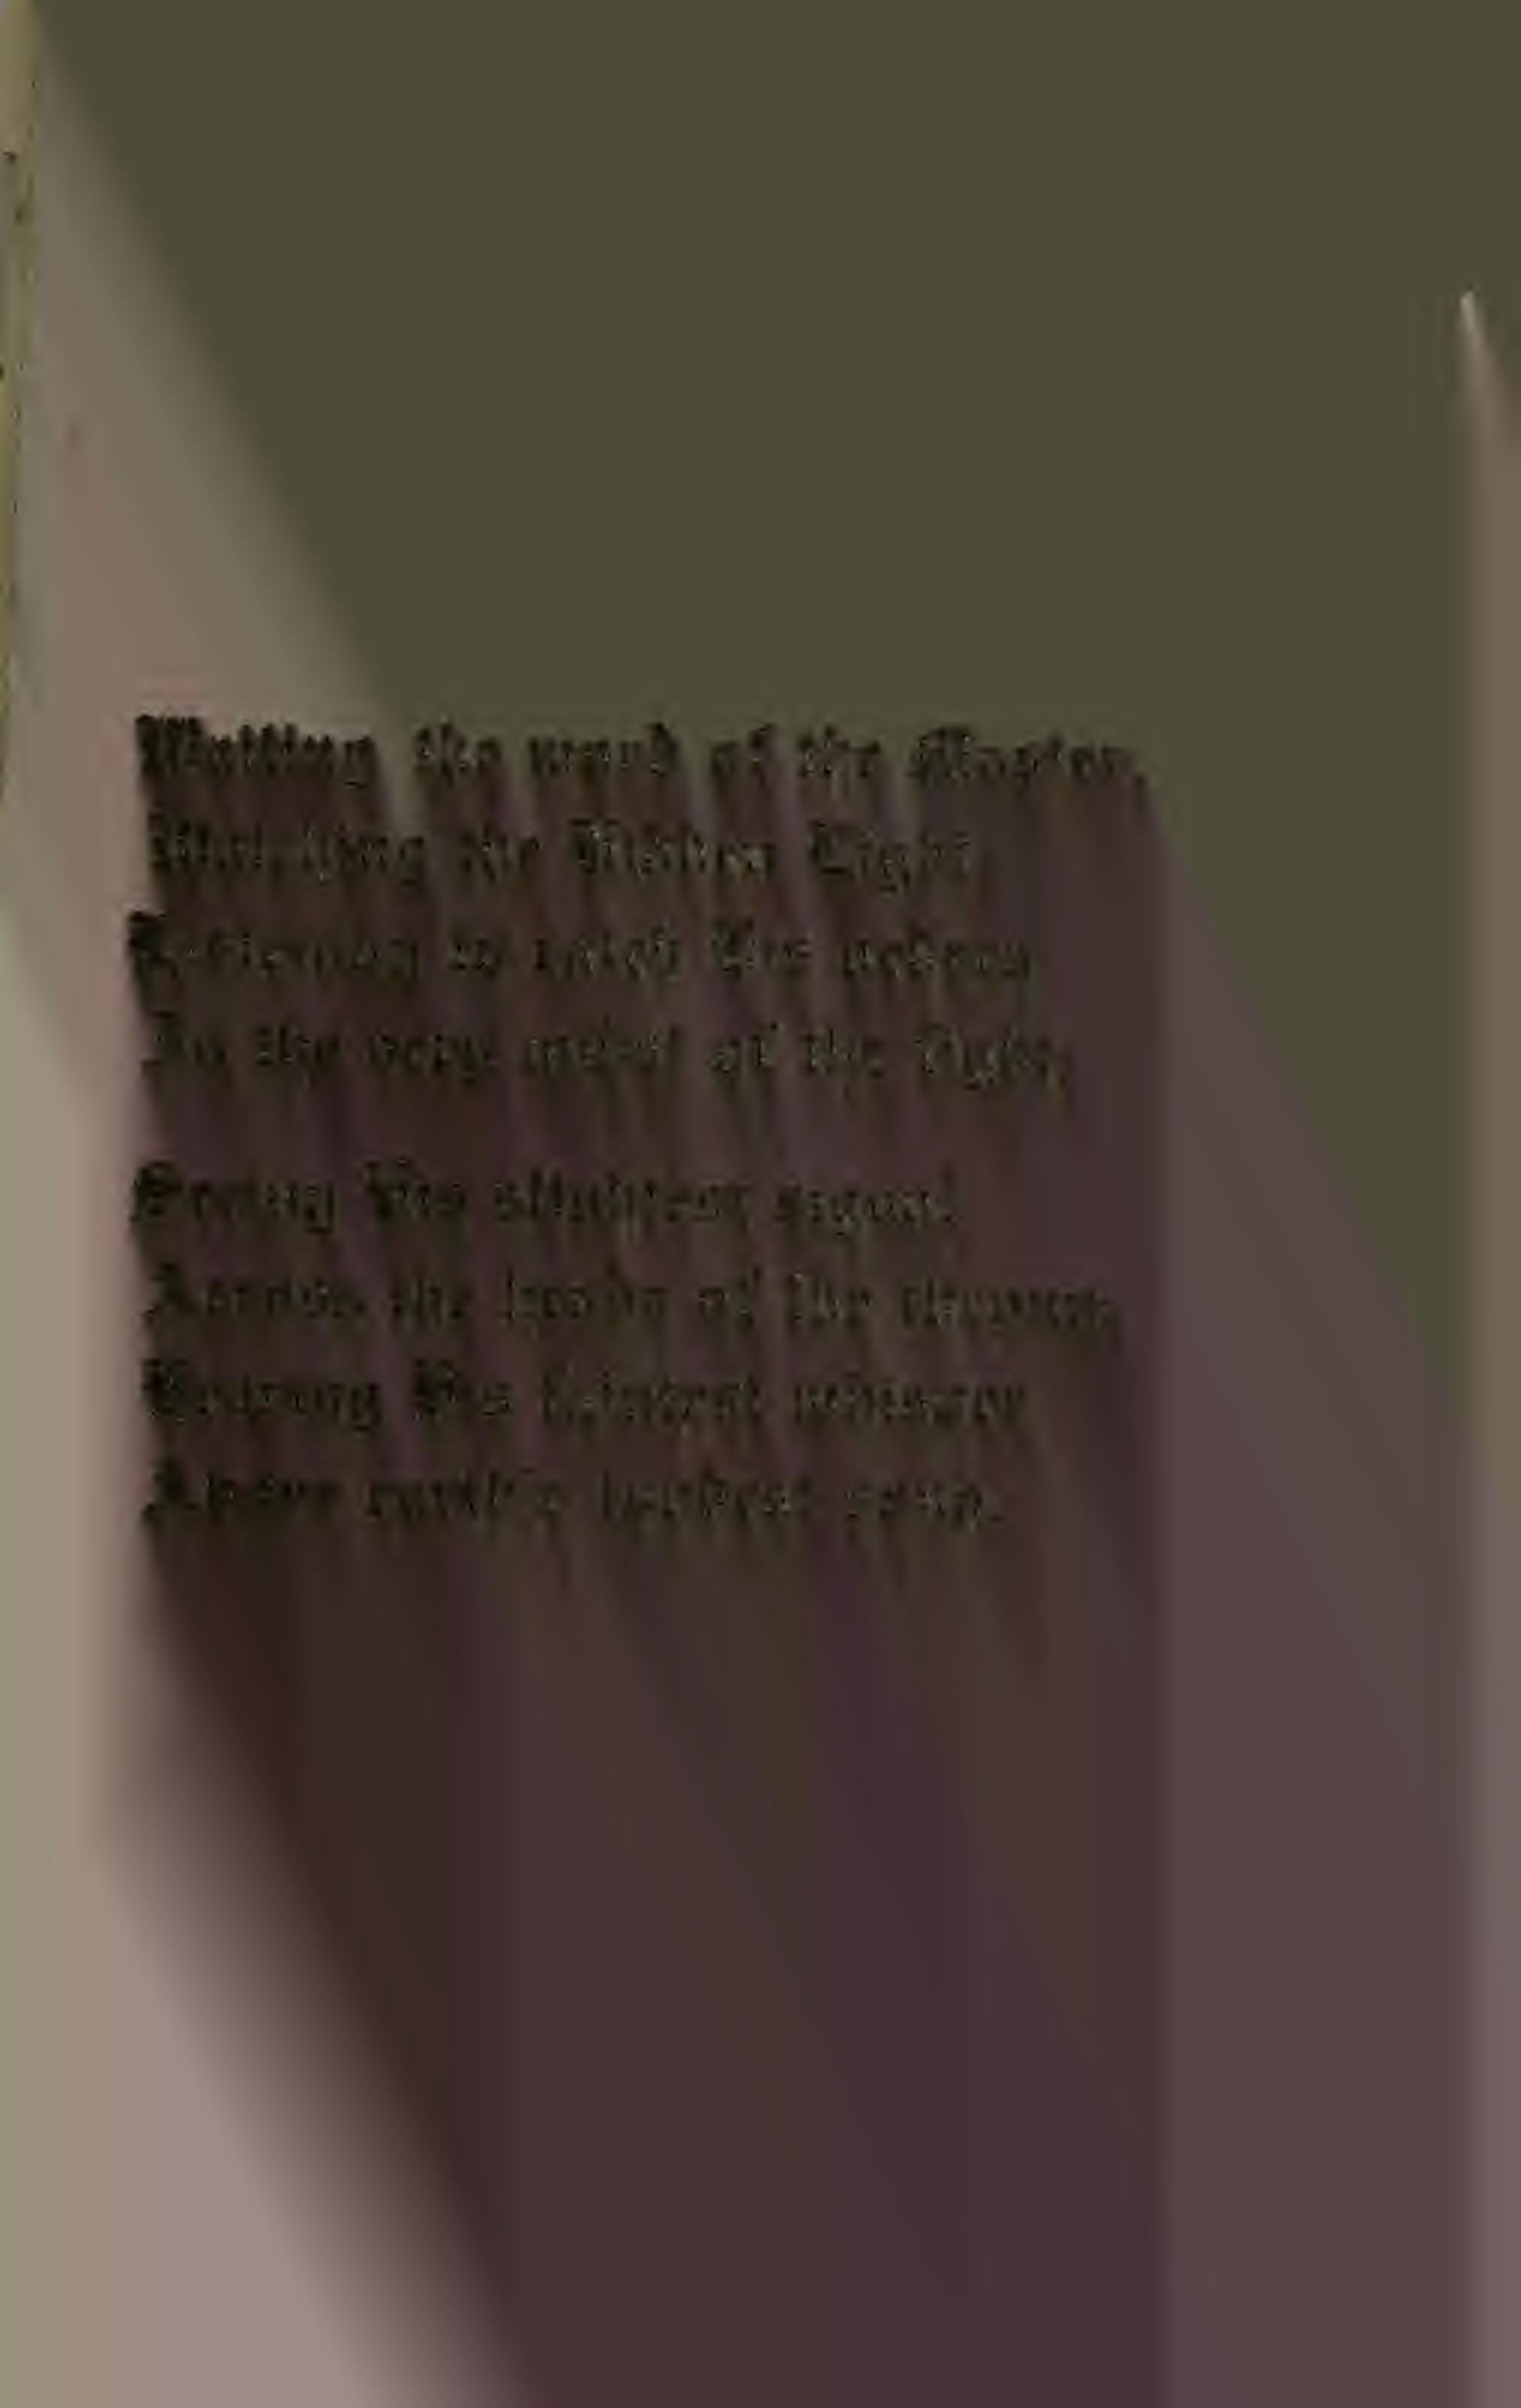 Waiting the word of the Master,
Watching the Hidden Light;
Listening to catch His orders
In the very midst of the fight;
Seeing His slightest signal
Across the heads of the throng;
Hearing His faintest whisper
Above earth's loudest song.